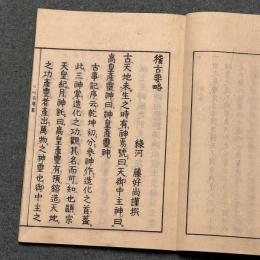 稽古要略
綠河 藤好尚謹撰
古天地未生之時有神焉號曰天御中主神曰
高皇產靈神曰神皇產靈神
古事記序云乾坤初分參神作造化之首蓋
此三神掌造化之功觀其名而可知也顯宗
天皇紀月神託曰高皇產靈有預鎔造天地
之功產靈者產出萬物之神靈也御中主之